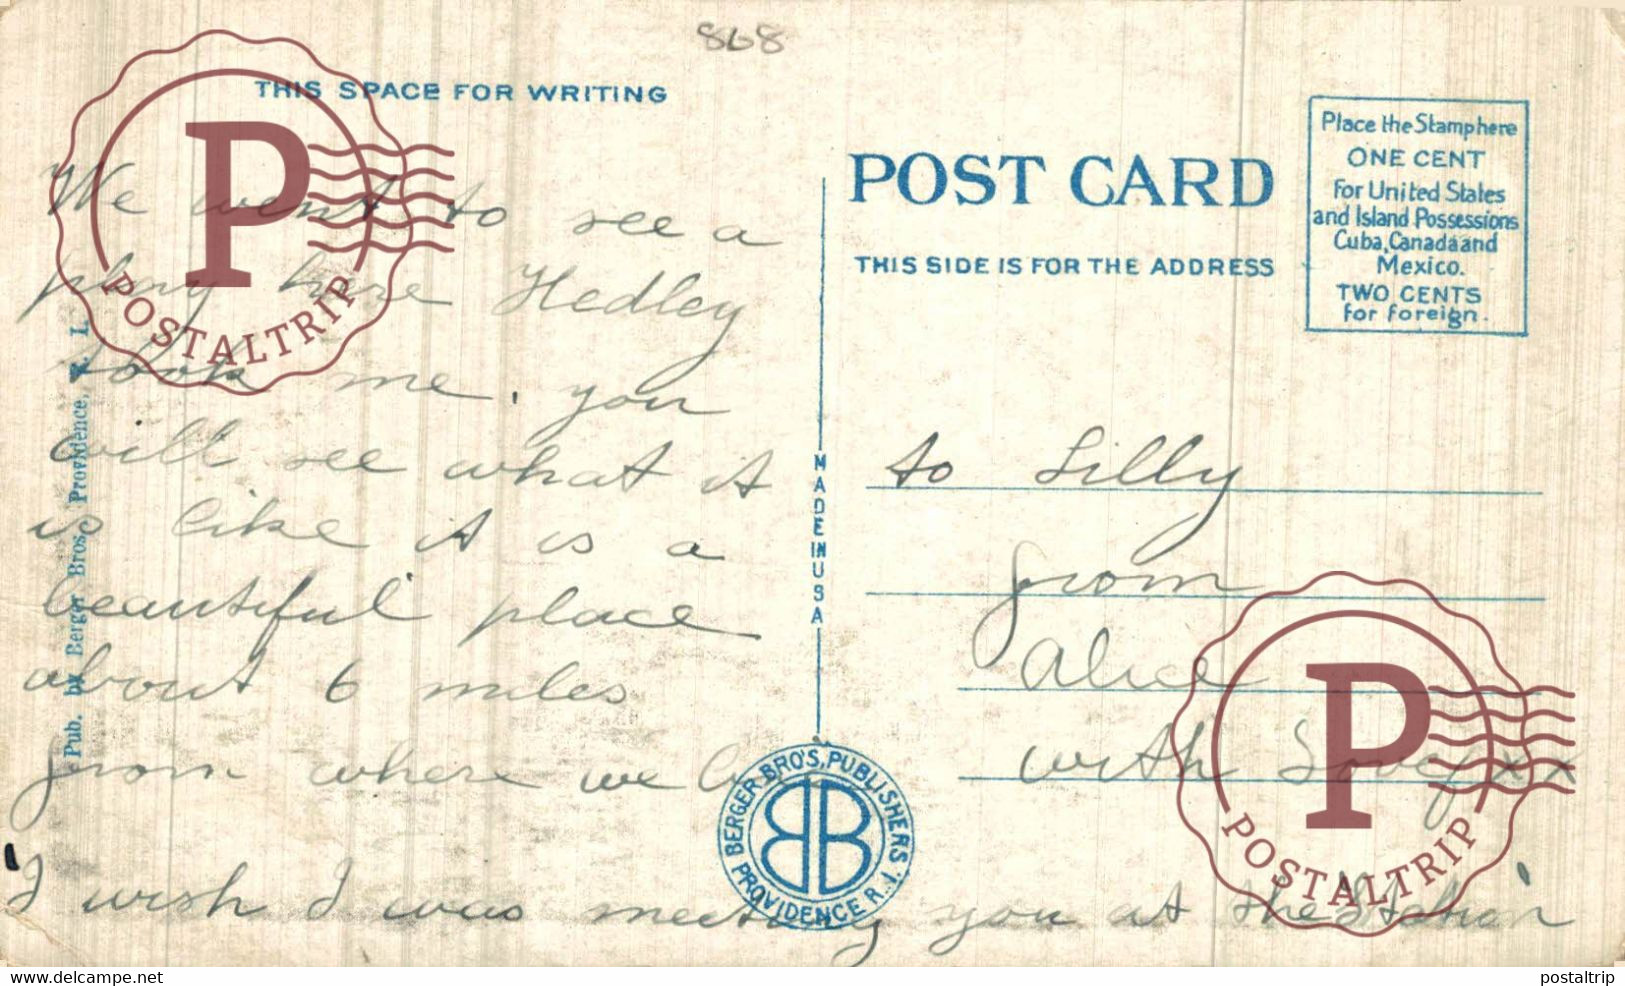 868
THIS SPACE FOR WRITING
We went to see a
play here Hedley
took me. you
will see what it
is like it is a
beautiful place
about 6 miles
from where we
I wish I was meeting you at the Station
Pub. by Berger Bros., Providence, R. I.
MADE IN USA
BERGER BRO'S, PUBLISHERS
PROVIDENCE R.I.
BB
POST CARD
THIS SIDE IS FOR THE ADDRESS
Place the Stamp here
ONE CENT
For United States
and Island Possessions
Cuba, Canada and
Mexico.
TWO CENTS
for foreign.
to Lilly
from
Alice
with Love xx
P
POSTALTRIP
P
POSTALTRIP
www.delcampe.net
postaltrip